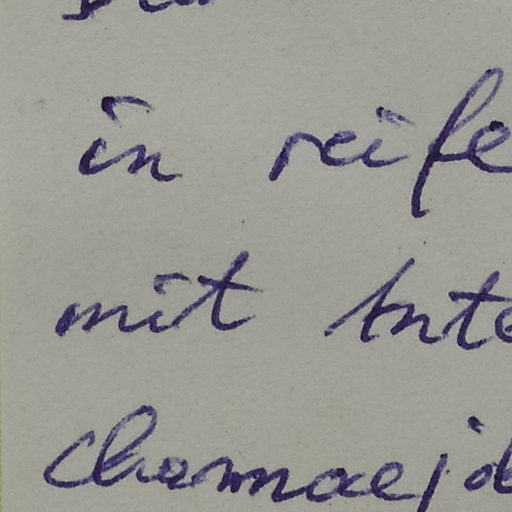 in reife
mit Ante
chamaejd